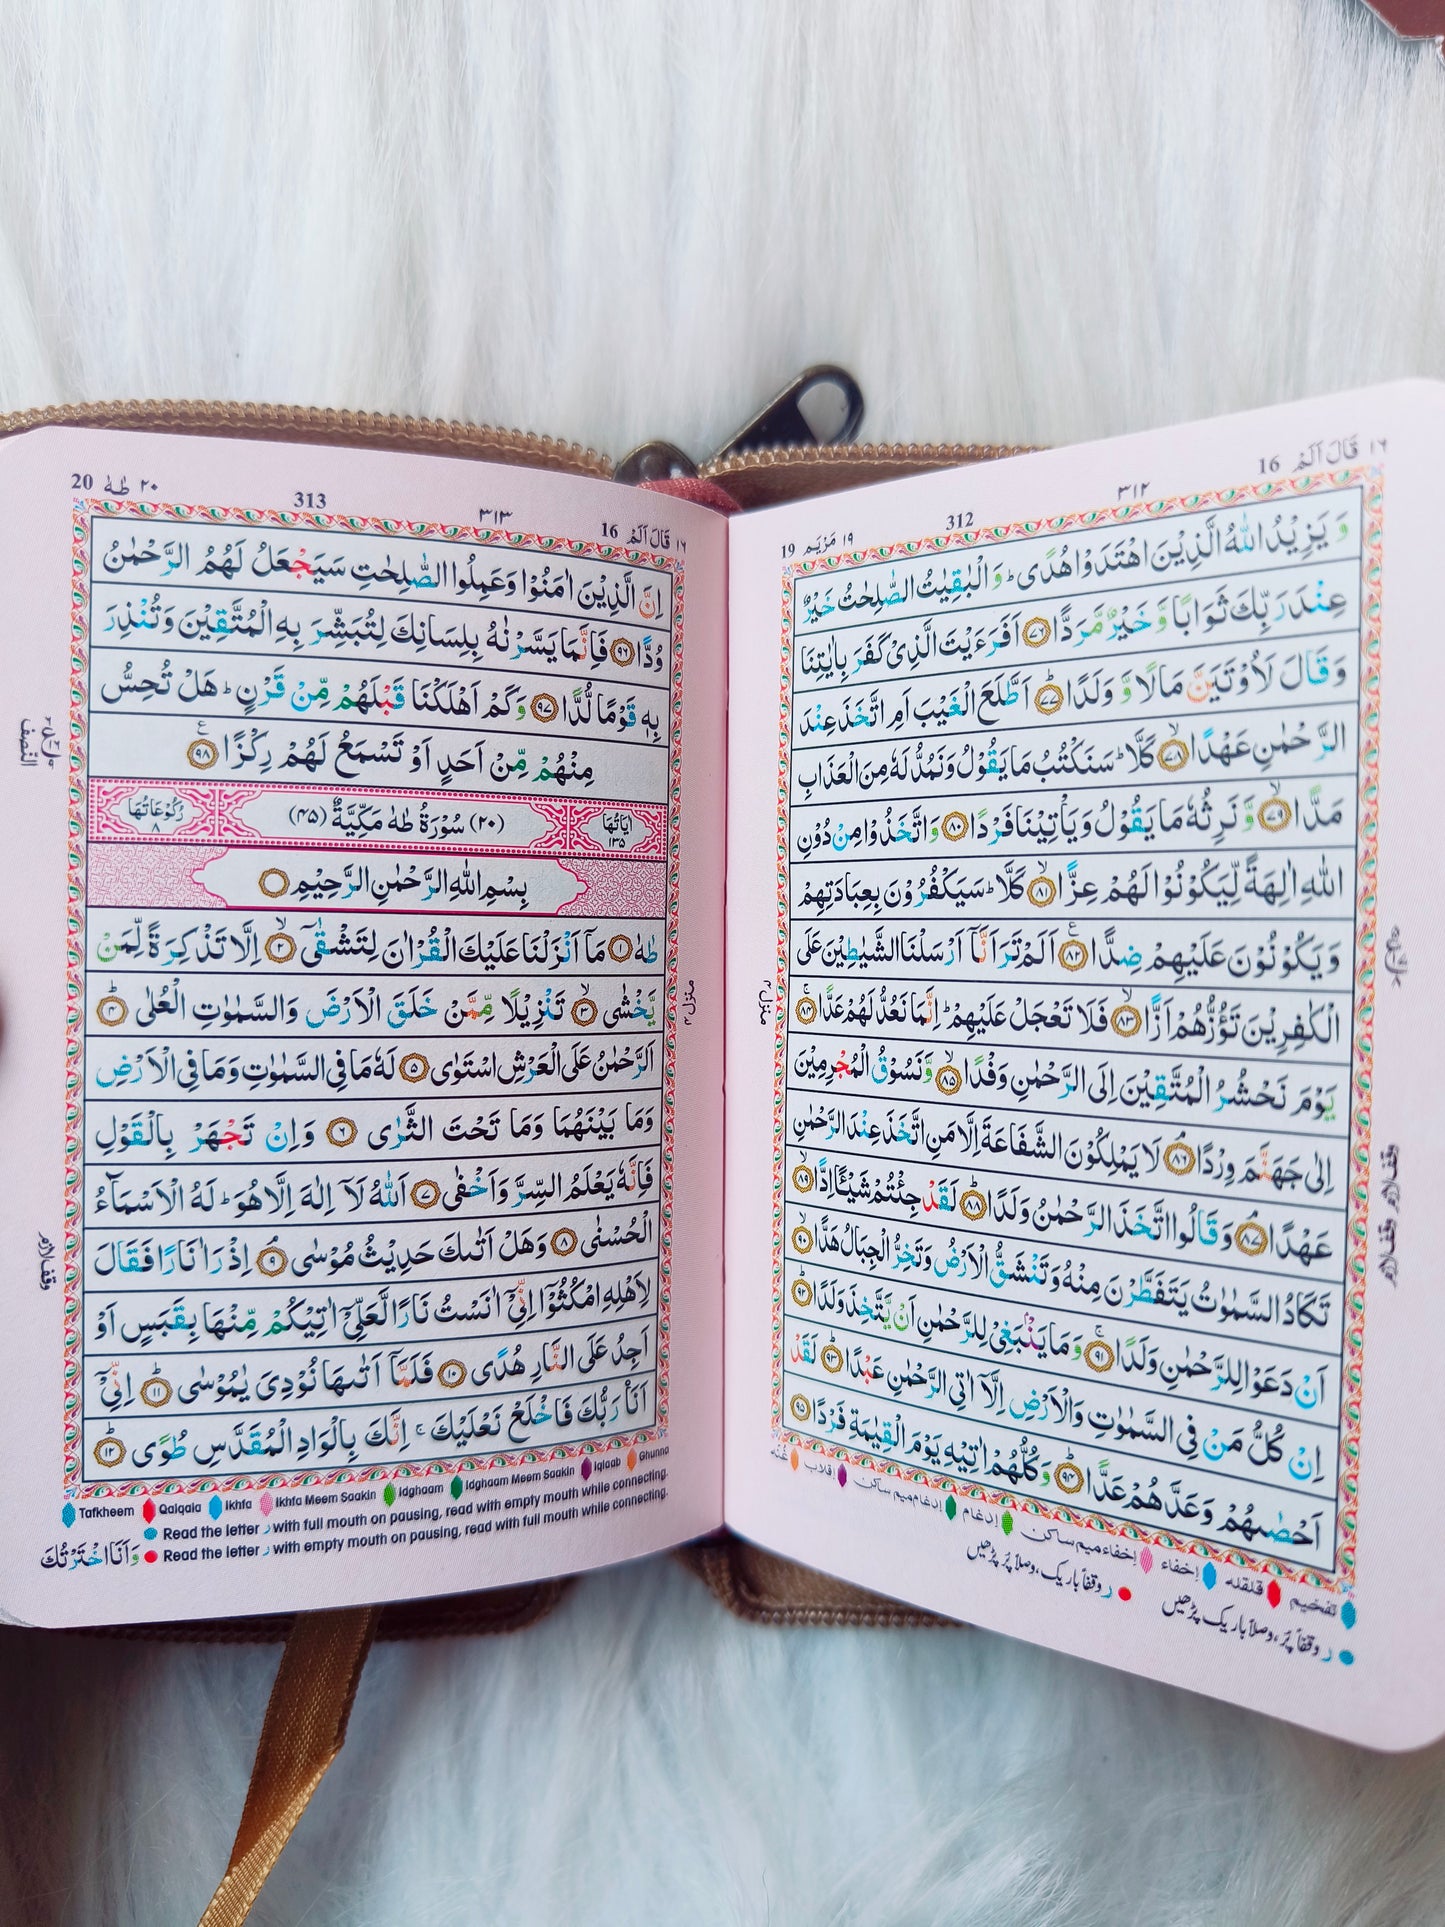 ١٦ قَالَ اَلَمْ 16
٣١٢
312
١٩ مَرْيَم 19
وَ يَزِيْدُ اللّٰهُ الَّذِيْنَ اهْتَدَوْا هُدًى ؕ وَ الْبٰقِيٰتُ الصّٰلِحٰتُ خَيْرٌ
عِنْدَ رَبِّكَ ثَوَابًا وَّ خَيْرٌ مَّرَدًّا ﴿٧٦﴾ اَفَرَءَيْتَ الَّذِيْ كَفَرَ بِاٰيٰتِنَا
وَ قَالَ لَاُوْتَيَنَّ مَالًا وَّ وَلَدًا ﴿٧٧﴾ اَطَّلَعَ الْغَيْبَ اَمِ اتَّخَذَ عِنْدَ
الرَّحْمٰنِ عَهْدًا ﴿٧٨﴾ كَلَّا ؕ سَنَكْتُبُ مَا يَقُوْلُ وَ نَمُدُّ لَهٗ مِنَ الْعَذَابِ
مَدًّا ﴿٧٩﴾ وَّ نَرِثُهٗ مَا يَقُوْلُ وَ يَاْتِيْنَا فَرْدًا ﴿٨٠﴾ وَ اتَّخَذُوْا مِنْ دُوْنِ
اللّٰهِ اٰلِهَةً لِّيَكُوْنُوْا لَهُمْ عِزًّا ﴿٨١﴾ كَلَّا ؕ سَيَكْفُرُوْنَ بِعِبَادَتِهِمْ
وَ يَكُوْنُوْنَ عَلَيْهِمْ ضِدًّا ﴿٨٢﴾ اَلَمْ تَرَ اَنَّاۤ اَرْسَلْنَا الشَّيٰطِيْنَ عَلَى
الْكٰفِرِيْنَ تَؤُزُّهُمْ اَزًّا ﴿٨٣﴾ فَلَا تَعْجَلْ عَلَيْهِمْ ؕ اِنَّمَا نَعُدُّ لَهُمْ عَدًّا ﴿٨٤﴾
يَوْمَ نَحْشُرُ الْمُتَّقِيْنَ اِلَى الرَّحْمٰنِ وَفْدًا ﴿٨٥﴾ وَّ نَسُوْقُ الْمُجْرِمِيْنَ
اِلٰى جَهَنَّمَ وِرْدًا ﴿٨٦﴾ لَا يَمْلِكُوْنَ الشَّفَاعَةَ اِلَّا مَنِ اتَّخَذَ عِنْدَ الرَّحْمٰنِ
عَهْدًا ﴿٨٧﴾ وَ قَالُوا اتَّخَذَ الرَّحْمٰنُ وَلَدًا ﴿٨٨﴾ لَقَدْ جِئْتُمْ شَيْـًٔا اِدًّا ﴿٨٩﴾
تَكَادُ السَّمٰوٰتُ يَتَفَطَّرْنَ مِنْهُ وَ تَنْشَقُّ الْاَرْضُ وَ تَخِرُّ الْجِبَالُ هَدًّا ﴿٩٠﴾
اَنْ دَعَوْا لِلرَّحْمٰنِ وَلَدًا ﴿٩١﴾ وَ مَا يَنْۢبَغِيْ لِلرَّحْمٰنِ اَنْ يَّتَّخِذَ وَلَدًا ﴿٩٢﴾
اِنْ كُلُّ مَنْ فِي السَّمٰوٰتِ وَ الْاَرْضِ اِلَّاۤ اٰتِي الرَّحْمٰنِ عَبْدًا ﴿٩٣﴾ لَقَدْ
اَحْصٰىهُمْ وَ عَدَّهُمْ عَدًّا ﴿٩٤﴾ وَ كُلُّهُمْ اٰتِيْهِ يَوْمَ الْقِيٰمَةِ فَرْدًا ﴿٩٥﴾
منزل ٤
وقف لازم
وقف لازم
تفخیم قلقله إخفاء إخفاء میم ساکن إدغام إدغام میم ساکن إقلاب غنه
ر وقفاً پُر، وصلاً باریک پڑھیں ر وقفاً باریک، وصلاً پُر پڑھیں
١٦ قَالَ اَلَمْ 16
٣١٣
313
٢٠ طٰهٰ 20
اِنَّ الَّذِيْنَ اٰمَنُوْا وَ عَمِلُوا الصّٰلِحٰتِ سَيَجْعَلُ لَهُمُ الرَّحْمٰنُ
وُدًّا ﴿٩٦﴾ فَاِنَّمَا يَسَّرْنٰهُ بِلِسَانِكَ لِتُبَشِّرَ بِهِ الْمُتَّقِيْنَ وَ تُنْذِرَ
بِهٖ قَوْمًا لُّدًّا ﴿٩٧﴾ وَ كَمْ اَهْلَكْنَا قَبْلَهُمْ مِّنْ قَرْنٍ ؕ هَلْ تُحِسُّ
مِنْهُمْ مِّنْ اَحَدٍ اَوْ تَسْمَعُ لَهُمْ رِكْزًا ﴿٩٨﴾
اٰيَاتُهَا ١٣٥ (٢٠) سُوْرَةُ طٰهٰ مَكِّيَّةٌ (٤٥) رُكُوْعَاتُهَا ٨
بِسْمِ اللّٰهِ الرَّحْمٰنِ الرَّحِيْمِ
طٰهٰ ﴿١﴾ مَاۤ اَنْزَلْنَا عَلَيْكَ الْقُرْاٰنَ لِتَشْقٰۤى ﴿٢﴾ اِلَّا تَذْكِرَةً لِّمَنْ
يَّخْشٰى ﴿٣﴾ تَنْزِيْلًا مِّمَّنْ خَلَقَ الْاَرْضَ وَ السَّمٰوٰتِ الْعُلٰى ﴿٤﴾
اَلرَّحْمٰنُ عَلَى الْعَرْشِ اسْتَوٰى ﴿٥﴾ لَهٗ مَا فِي السَّمٰوٰتِ وَ مَا فِي الْاَرْضِ
وَ مَا بَيْنَهُمَا وَ مَا تَحْتَ الثَّرٰى ﴿٦﴾ وَ اِنْ تَجْهَرْ بِالْقَوْلِ
فَاِنَّهٗ يَعْلَمُ السِّرَّ وَ اَخْفٰى ﴿٧﴾ اَللّٰهُ لَاۤ اِلٰهَ اِلَّا هُوَ ؕ لَهُ الْاَسْمَآءُ
الْحُسْنٰى ﴿٨﴾ وَ هَلْ اَتٰىكَ حَدِيْثُ مُوْسٰى ﴿٩﴾ اِذْ رَاٰ نَارًا فَقَالَ
لِاَهْلِهِ امْكُثُوْۤا اِنِّيْۤ اٰنَسْتُ نَارًا لَّعَلِّيْۤ اٰتِيْكُمْ مِّنْهَا بِقَبَسٍ اَوْ
اَجِدُ عَلَى النَّارِ هُدًى ﴿١٠﴾ فَلَمَّاۤ اَتٰىهَا نُوْدِيَ يٰمُوْسٰى ﴿١١﴾ اِنِّيْۤ
اَنَا رَبُّكَ فَاخْلَعْ نَعْلَيْكَ ۚ اِنَّكَ بِالْوَادِ الْمُقَدَّسِ طُوًى ﴿١٢﴾
منزل ٤
النصف
وقف لازم
Tafkheem Qalqala Ikhfa Ikhfa Meem Saakin Idghaam Idghaam Meem Saakin Iqlaab Ghunna
Read the letter ر with full mouth on pausing, read with empty mouth while connecting.
Read the letter ر with empty mouth on pausing, read with full mouth while connecting.
وَ اَنَا اخْتَرْتُكَ